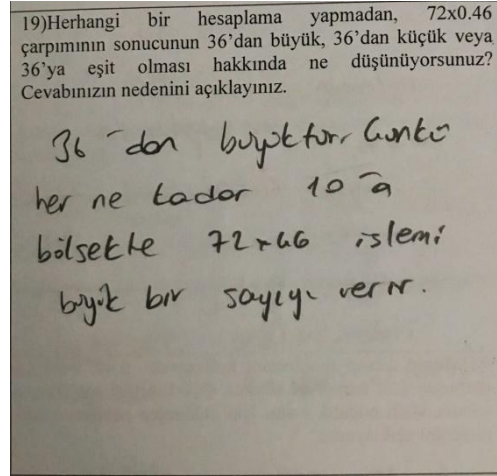 19)Herhangi bir hesaplama yapmadan, 72x0.46
çarpımının sonucunun 36'dan büyük, 36'dan küçük veya
36'ya eşit olması hakkında ne düşünüyorsunuz?
Cevabınızın nedenini açıklayınız.
36'dan büyüktür. Çünkü
her ne kadar 10'a
bölsekte 72x46 işlemi
büyük bir sayıyı verir.